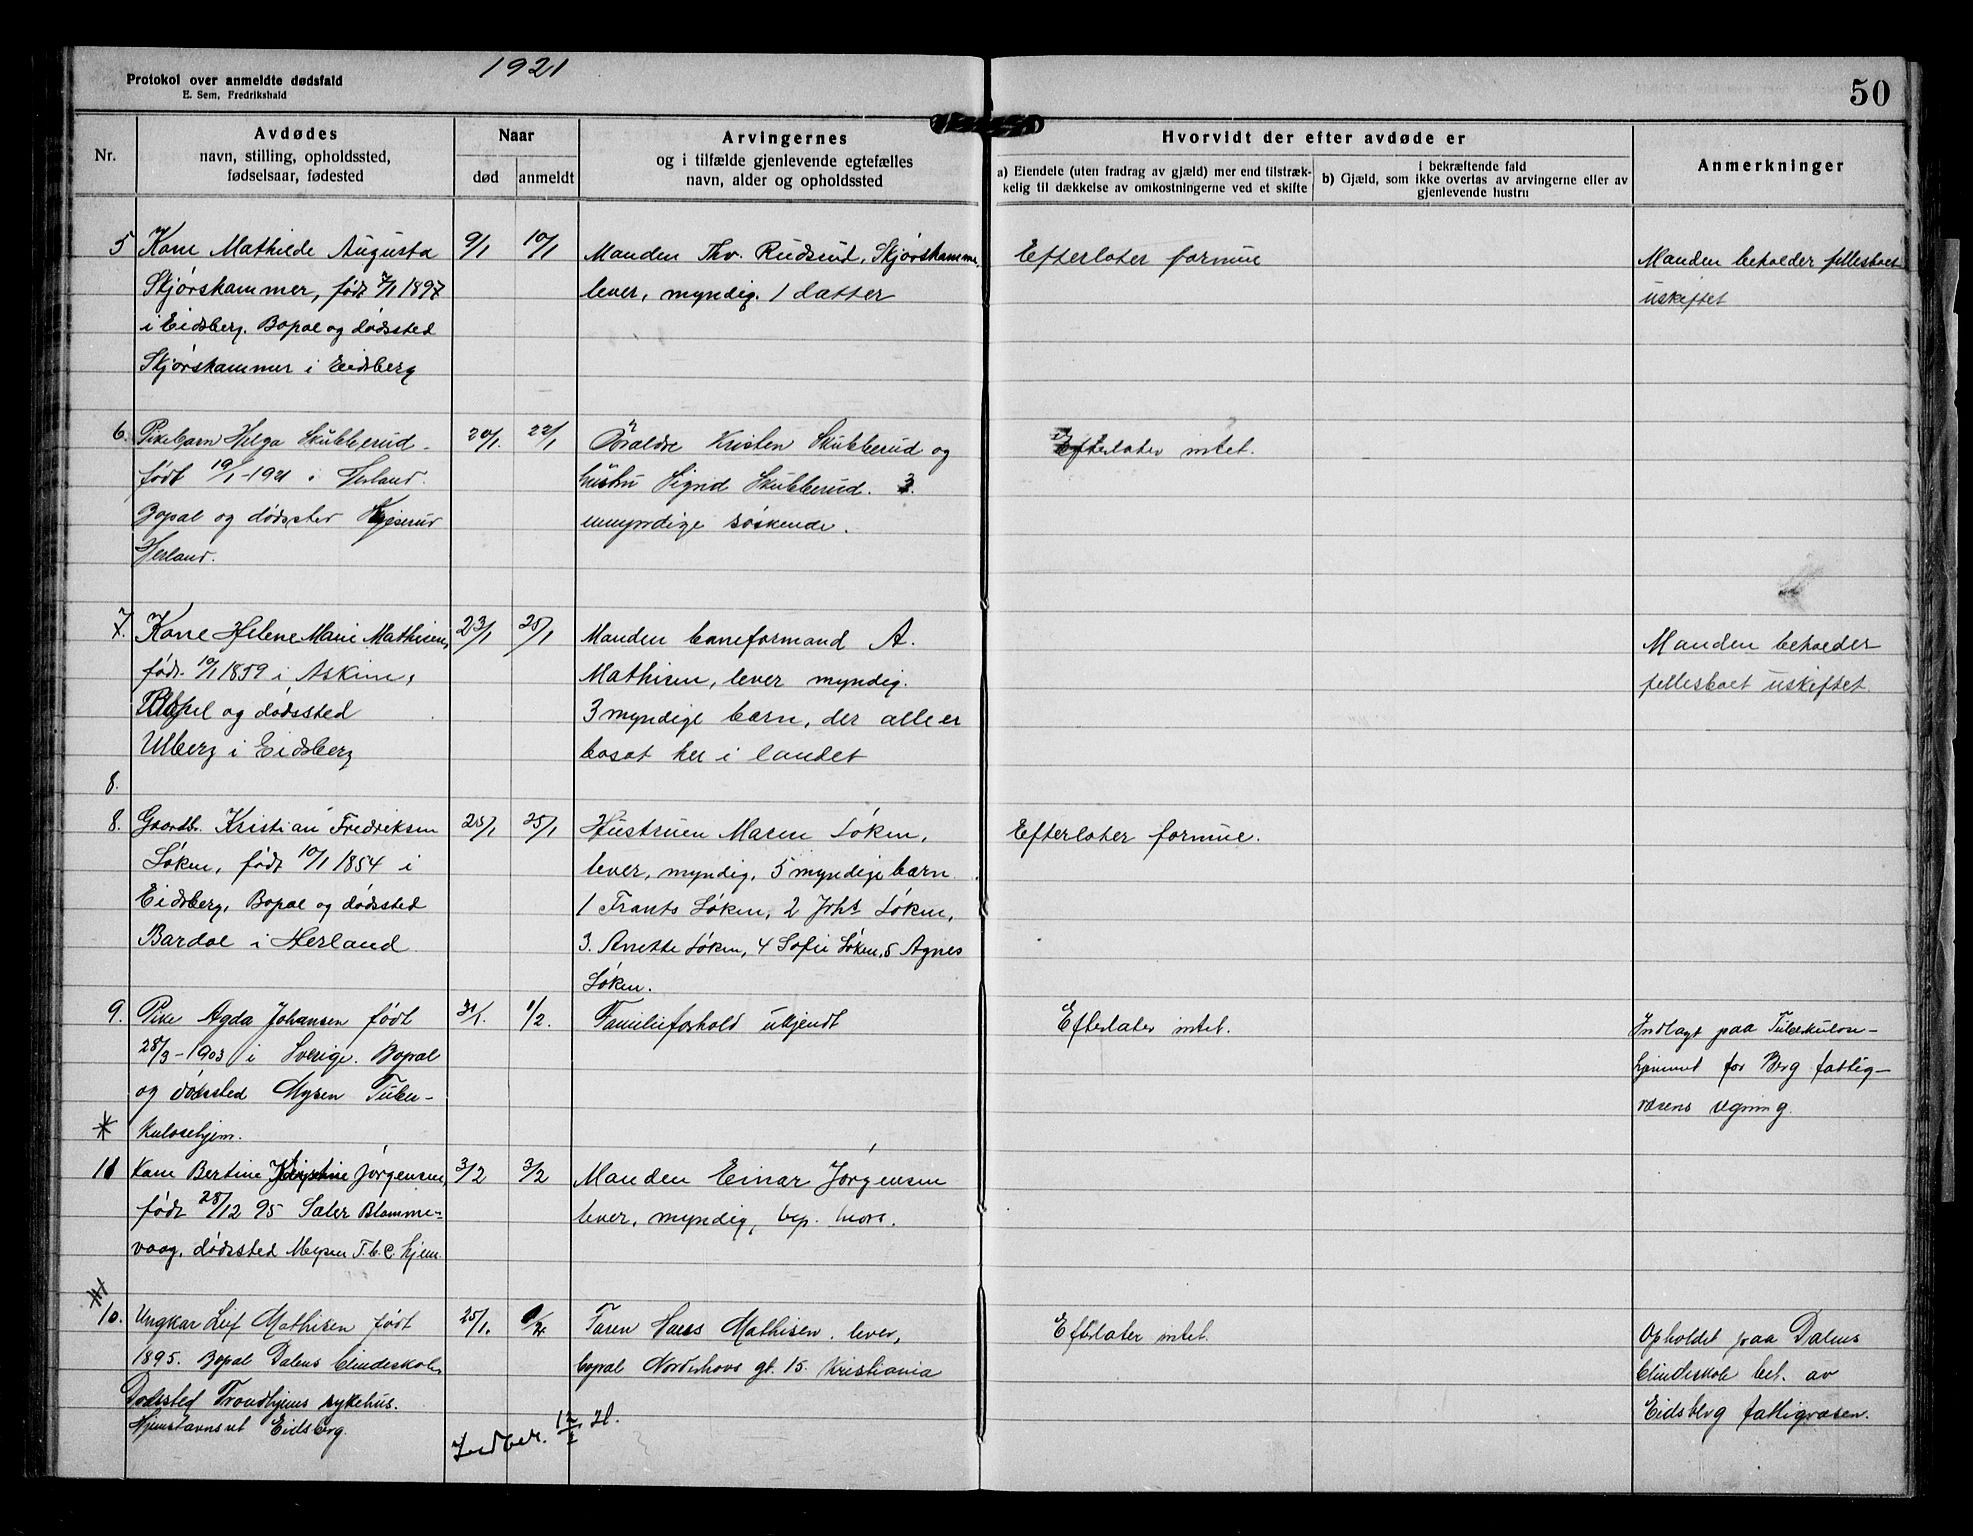 1921
Protokol over anmeldte dødsfald
E. Sem, Fredrikshald
50
Nr.
Avdødes
navn, stilling, opholdssted,
fødselsaar, fødested
Naar
død
anmeldt
Arvingernes
og i tilfælde gjenlevende egtefælles
navn, alder og opholdssted
Hvorvidt der efter avdøde er
a) Eiendele (uten fradrag av gjæld) mer end tilstræk-
kelig til dækkelse av omkostningerne ved et skifte
i bekræftende fald
b) Gjæld, som ikke overtas av arvingerne eller av
gjenlevende hustru
Anmerkninger
5
Kone Mathilde Augusta
Skjørshammer, født 7/1 1897
i Eidsberg. Bopæl og dødssted
Skjørshammer i Eidsberg
9/1
10/1
Manden Thv. Rudsrud, Skjørshammer,
lever, myndig. 1 datter
Efterlater formue
Manden beholder fellesboet
uskiftet
6.
Pikebarn Helga Skubberud.
født 19/1-1921 i Herland.
Bopæl og dødssted
Herland.
20/1.
22/1
Kristen Skubberud og
hustru Signe Skubberud. 3.
umyndige søskende.
Efterlater intet.
7.
Kone Helene Marie Mathisen,
født. 10/1 1859 i Askim,
Bopæl og dødssted
Ulberg i Eidsberg
23/1
25/1
Manden baneformand A.
Mathisen, lever myndig.
3 myndige barn, der alle er
bosat her i landet
Manden beholder
fellesboet uskiftet
8.
8.
Gaardbr. Kristian Fredriksen
Løken, født 10/1 1854 i
Eidsberg, Bopæl og dødssted
Bardal i Herland
25/1
Hustruen Maren Løken,
lever, myndig, 5 myndige barn
1 Frants Løken, 2 Johs Løken,
3. Anette Løken, 4 Sofie Løken, 5 Agnes
Løken.
Efterlater formue.
9.
Pike Agda Johansen født
28/3-1903 i Sverige. Bopæl
og dødssted Mysen Tuber-
kulosehjem.
31/1.
1/2.
Familieforhold ukjendt
Efterlater intet.
Indlagt paa Tuberkulose-
hjemmet for Berg fattig-
væsens regning.
11
Kone Bertine Jørgensen,
født 28/12 95 Sæter Blomme-
vaag, dødssted Mysen T.b.C. hjem.
3/2
3/2
Manden Einar Jørgensen
lever, myndig, bop. Moss.
10.
Ungkar Leif Mathisen født
1895. Bopæl Dalens blindeskole,
Dødssted Trondhjems sykehus.
Hjemstavnsret Eidsberg.
25/1.
Faren Hans Mathisen. lever,
bopæl Norderhovs gt. 15. Kristiania
Efterlater intet.
Opholdet paa Dalens
blindeskole bet. av
Eidsberg fattigvæsen.
Indber. 12/2 21.